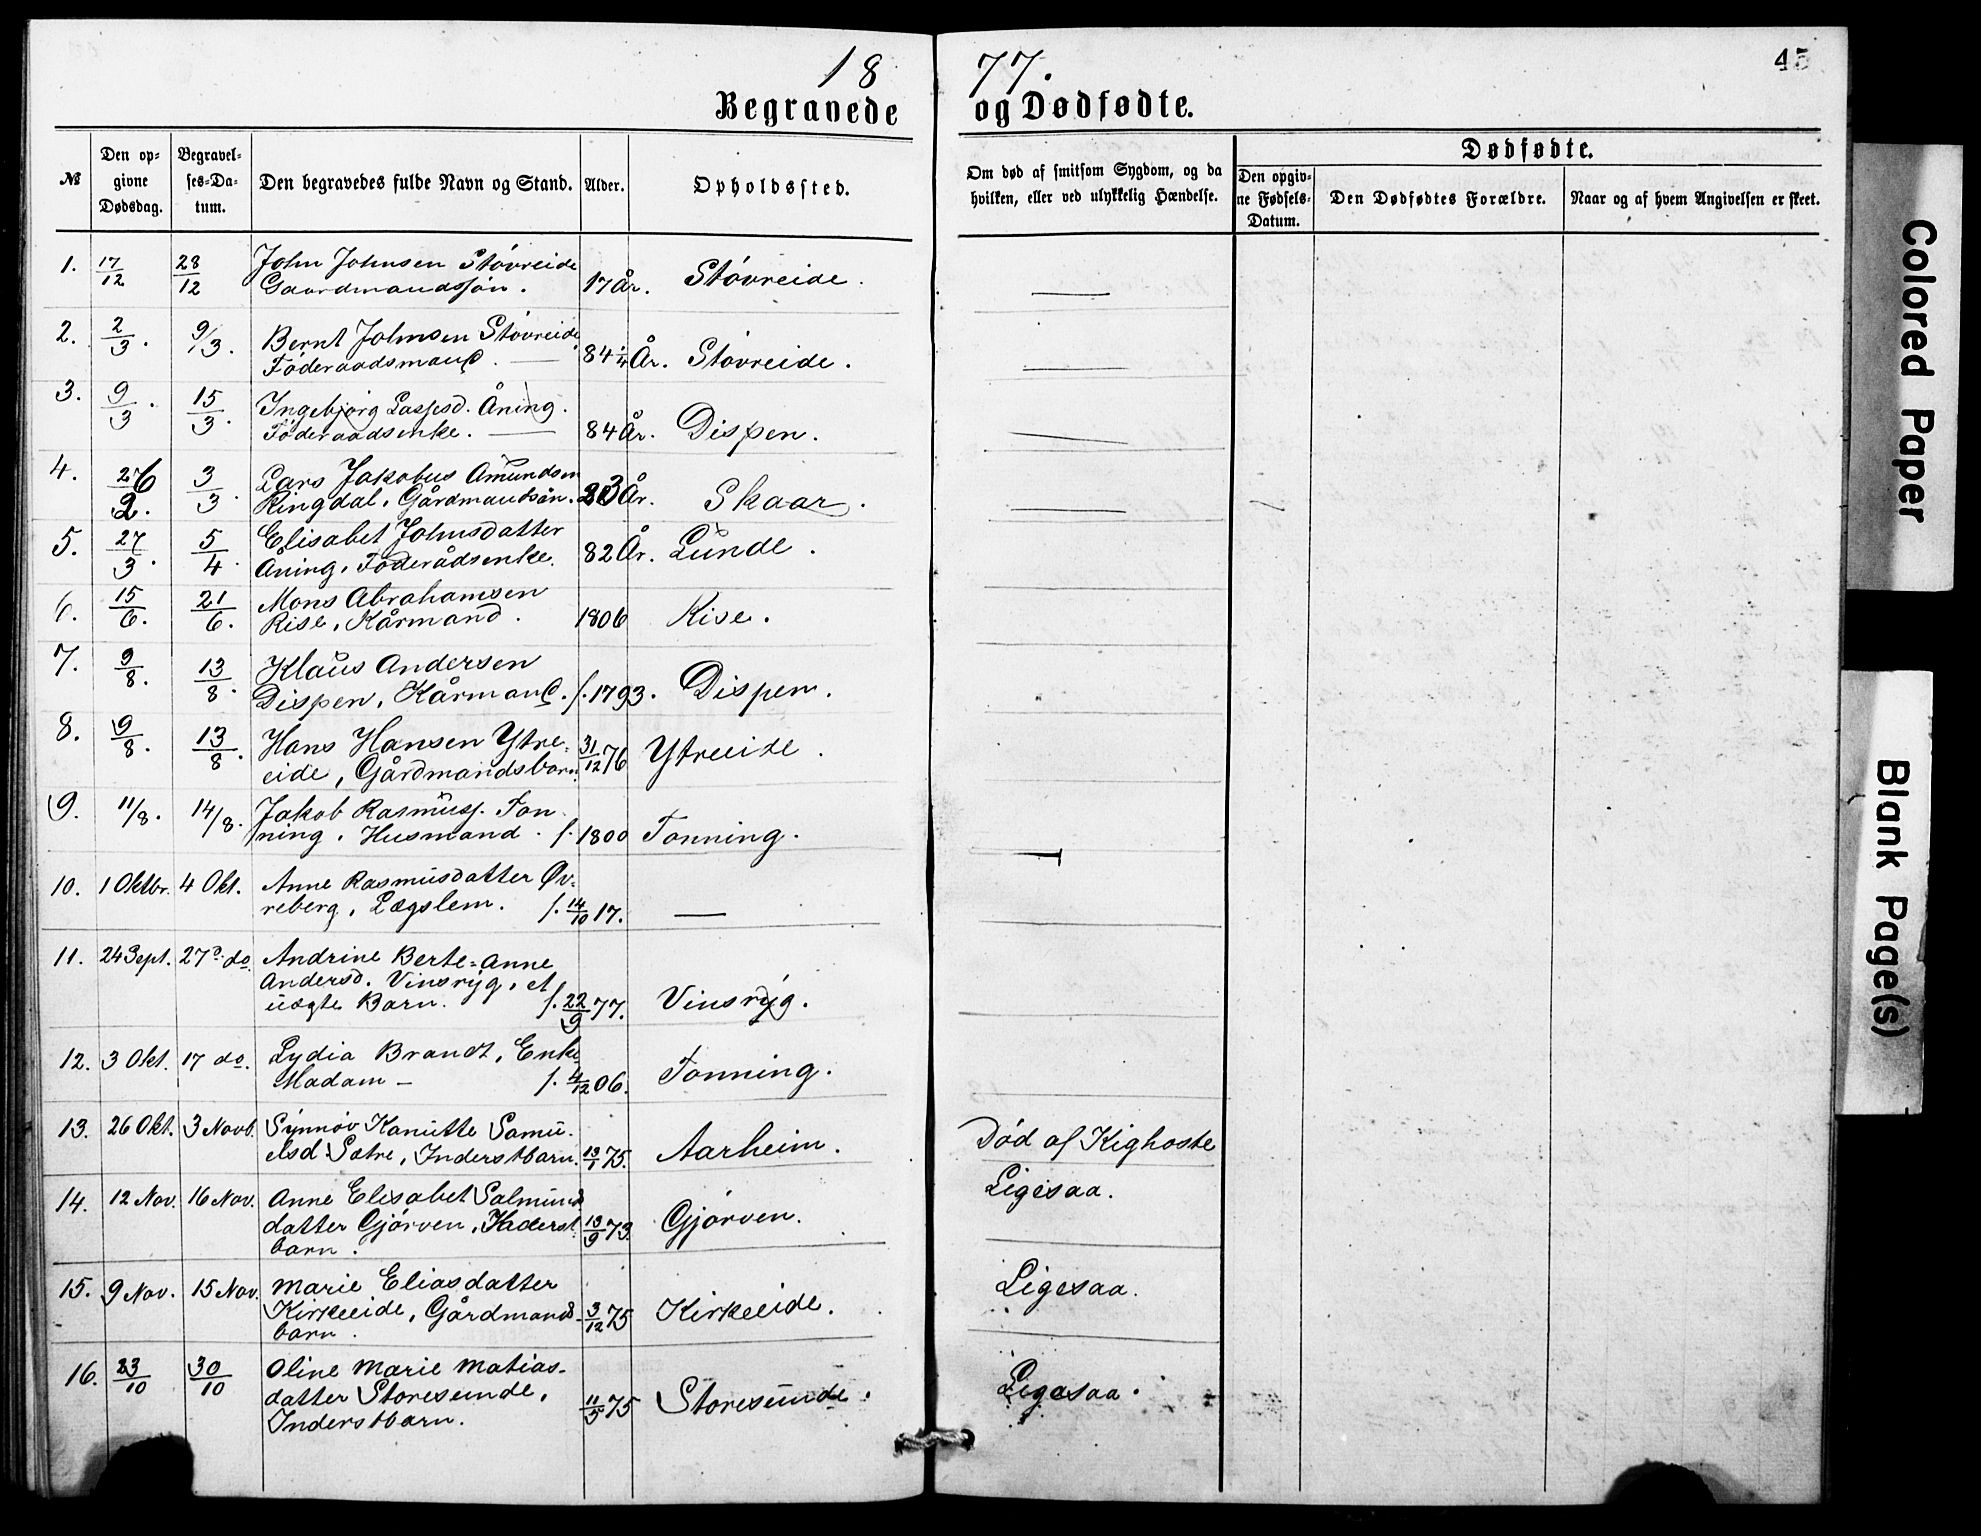 18 77.
45
Begravede og Dødfødte.
№
Den opgivne Dødsdag.
Begravelses-Datum.
Den begravedes fulde Navn og Stand.
Alder.
Opholdssted.
Om død af smitsom Sygdom, og da hvilken, eller ved ulykkelig Hændelse.
Dødfødte.
Den opgivne Fødsels-Datum.
Den Dødfødtes Forældre.
Naar og af hvem Angivelsen er skeet.
1. 17/12 28/12 John Johnsen Støvreide
Gaardmandssøn. 17 År. Støvreide.
2. 2/3. 9/3. Bernt Johnsen Støvreide
Föderaadsmand. 84 1/4 År. Støvreide.
3. 9/3. 15/3. Ingebjørg Lassesd. Åning.
Föderaadsenke. — 84 År. Dispen.
4. 26/2. 3/3. Lars Jakobus Amundsen
Ringdal, Gårdmandsøn. 23 År. Skaar.
5. 27/3. 5/4. Elisabet Johnsdatter
Åning, Föderådsenke. 82 År. Lunde.
6. 15/6. 21/6. Mons Abrahamsen
Rise, Kårmand. 1806 Rise.
7. 9/8. 13/8. Klaus Andersen
Dispen, Kårmand. f. 1793. Dispen.
8. 9/8. 13/8. Hans Hansen Ytre-
eide, Gårdmandsbarn. 31/12 76 Ytreeide.
9. 11/8. 14/8. Jakob Rasmuss. Ton-
ning, Husmand. f. 1800 Tonning.
10. 1 Oktbr. 4 Okt. Anne Rasmusdatter Øv-
reberg, Lægslem. f. 14/10 17. —
11. 24 Sept. 27 do. Andrine Berte-Anne
Andersd. Vinsryg, et
uægte Barn. f. 22/9 77. Vinsryg.
12. 3 Okt. 17 do. Lydia Brandt, Enke
Madam — f. 4/12 06. Tonning.
13. 26 Okt. 3 Novb. Synnöv Kanutte Samu-
elsd Sætre, Inderstbarn. 13/1 75. Aarheim. Död af Kighoste
14. 12 Nov. 16 Nov. Anne Elisabet Salmund
datter Gjörven, Inderst
barn. 13/9 73. Gjörven. Ligesaa.
15. 9 Nov. 15 Nov. Marie Eliasdatter
Kirkeeide, Gårdmands-
barn. 3/12 75 Kirkeeide. Ligesaa.
16. 23/10 30/10 Oline Marie Matias-
datter Storesunde,
Inderstbarn. 11/5 75 Storesunde. Ligesaa.
Colored Paper
Blank Page(s)